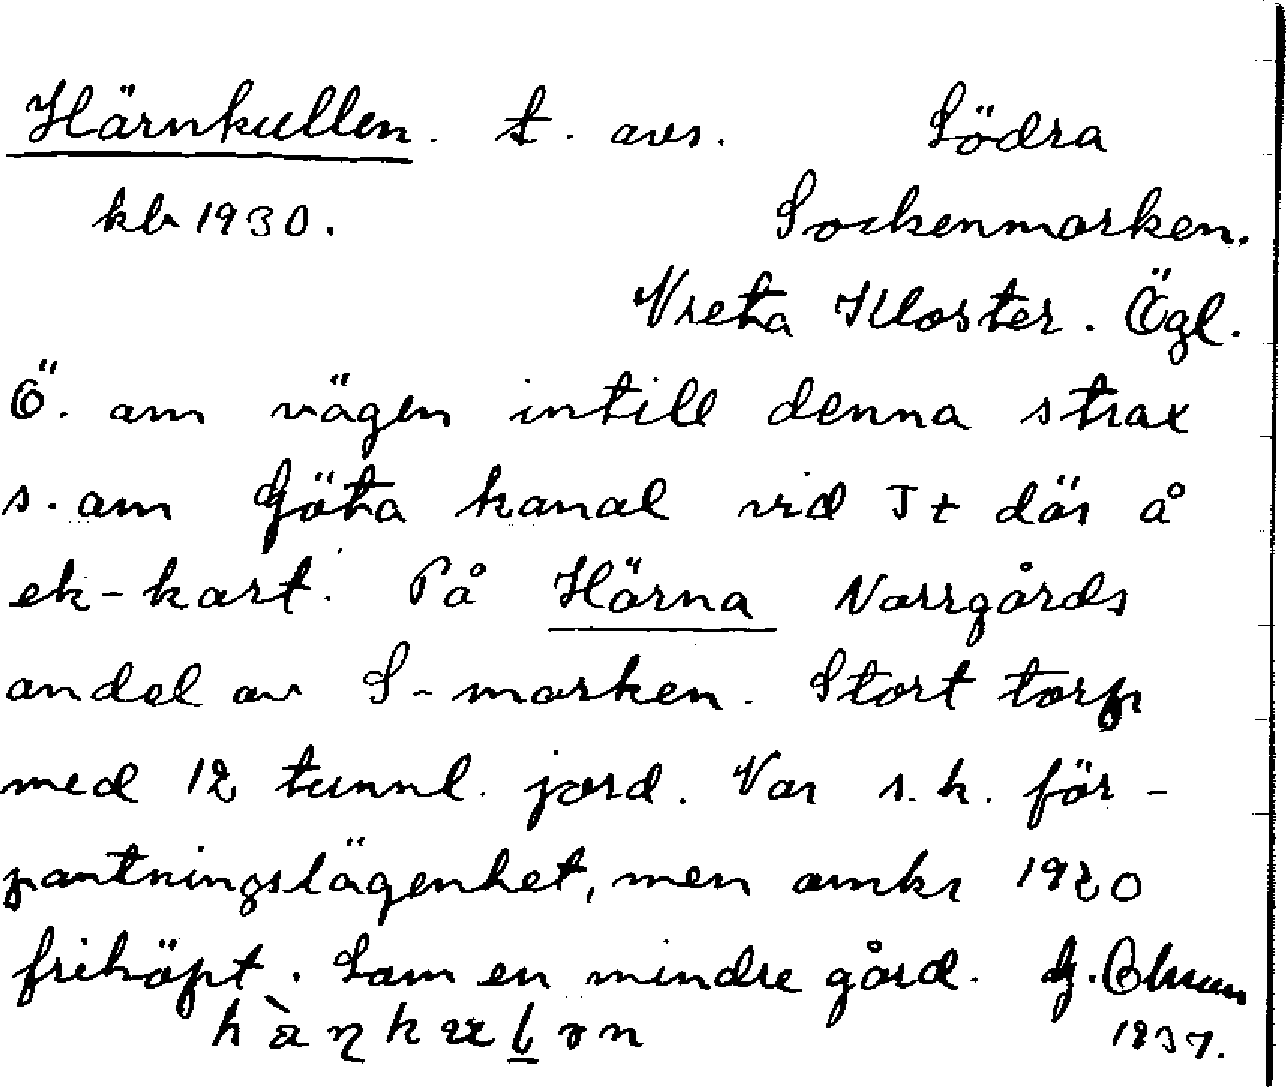 Härnkullen. t. avs. Södra
kb 1930. Sockenmarken.
Vreta Kloster. Ögl.
Ö. om vägen intill denna strax
s. om Göta kanal vid Jt där å
ek-kart. På Härna Norrgårds
andel av S-marken. Stort torp
med 12 tunnl. jord. Var s.k. för-
pantningslägenhet, men omkr 1920
friköpt. Som en mindre gård. G. Olsson
1937.